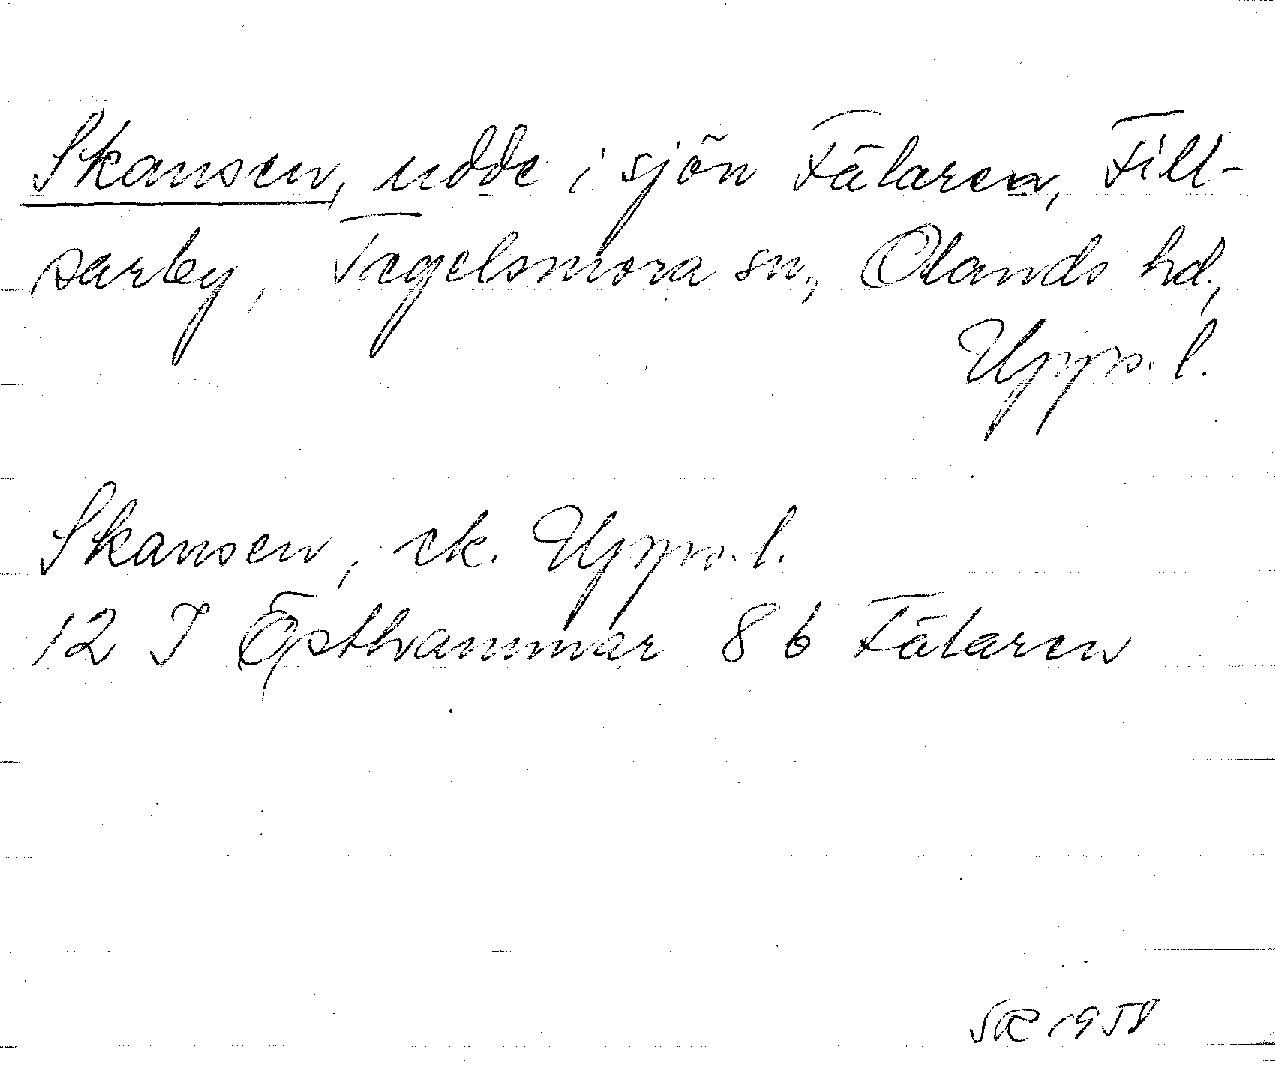 Skansen, udde i sjön Fälaren, Fill-
sarby, Tegelsmora sn., Olands hd,
Upps. l.
Skansen, ek. Upps. l.
12 I Östhammar 8 b Fälaren
SR 1958